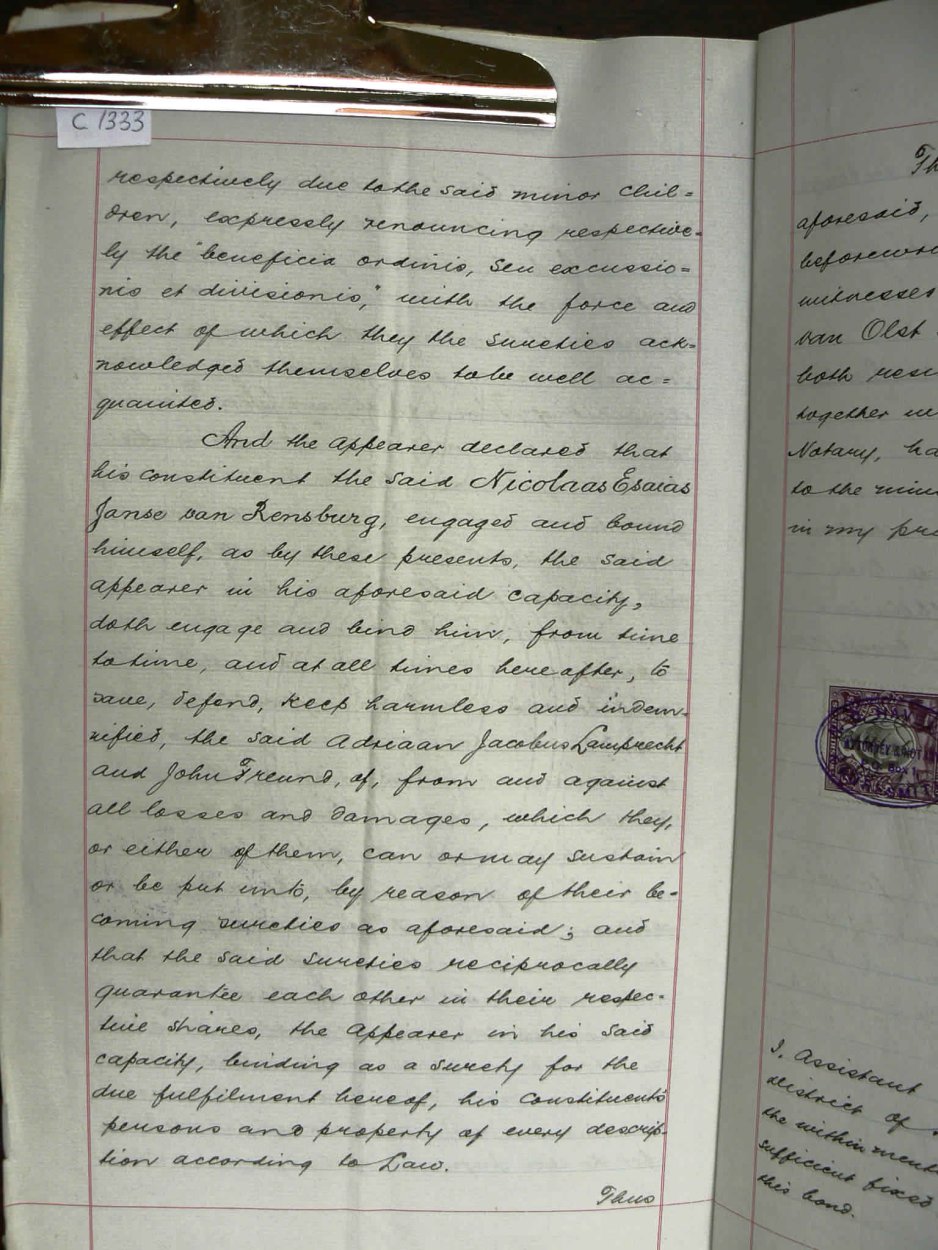 C 1333
respectively due to the said minor Chil=
dren, expressly renouncing respective=
ly the "beneficia ordinis, seu excussio=
nis et divisionis," with the force and
effect of which they the Sureties ack=
nowledged themselves to be well ac=
quainted.
And the appearer declared that
his constituent the said Nicolaas Esaias
Janse van Rensburg, engaged and bound
himself, as by these presents, the said
appearer in his aforesaid capacity,
doth engage and bind him, from time
to time, and at all times hereafter, to
save, defend, keep harmless and indem-
nified, the said Adriaan Jacobus Lamprecht
and John Freund, of, from and against
all losses and damages, which they,
or either of them, can or may sustain
or be put unto, by reason of their be-
coming sureties as aforesaid; and
that the said sureties reciprocally
guarantee each other in their respec-
tive shares, the appearer in his said
capacity, binding as a surety for the
due fulfilment hereof, his Constituents
persons and property of every descrip-
tion according to Law.
Thus
Th
aforesaid,
witnesses
van Olst
both
together
Notary, ha
to the
in my pre
I. Assistant
district of
the within
sufficient fixed
this bond.